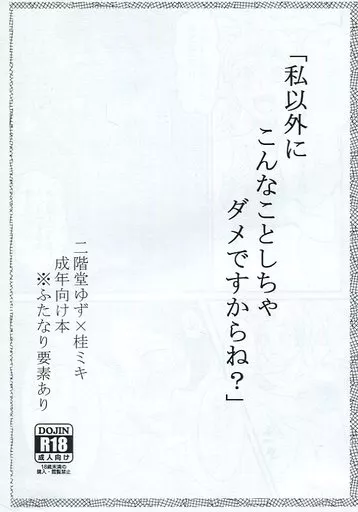 「私以外に
こんなことしちゃ
ダメですからね？」
二階堂ゆず×桂ミキ
成年向け本
※ふたなり要素あり
DOJIN
R18
成人向け
18歳未満の
購入・閲覧禁止